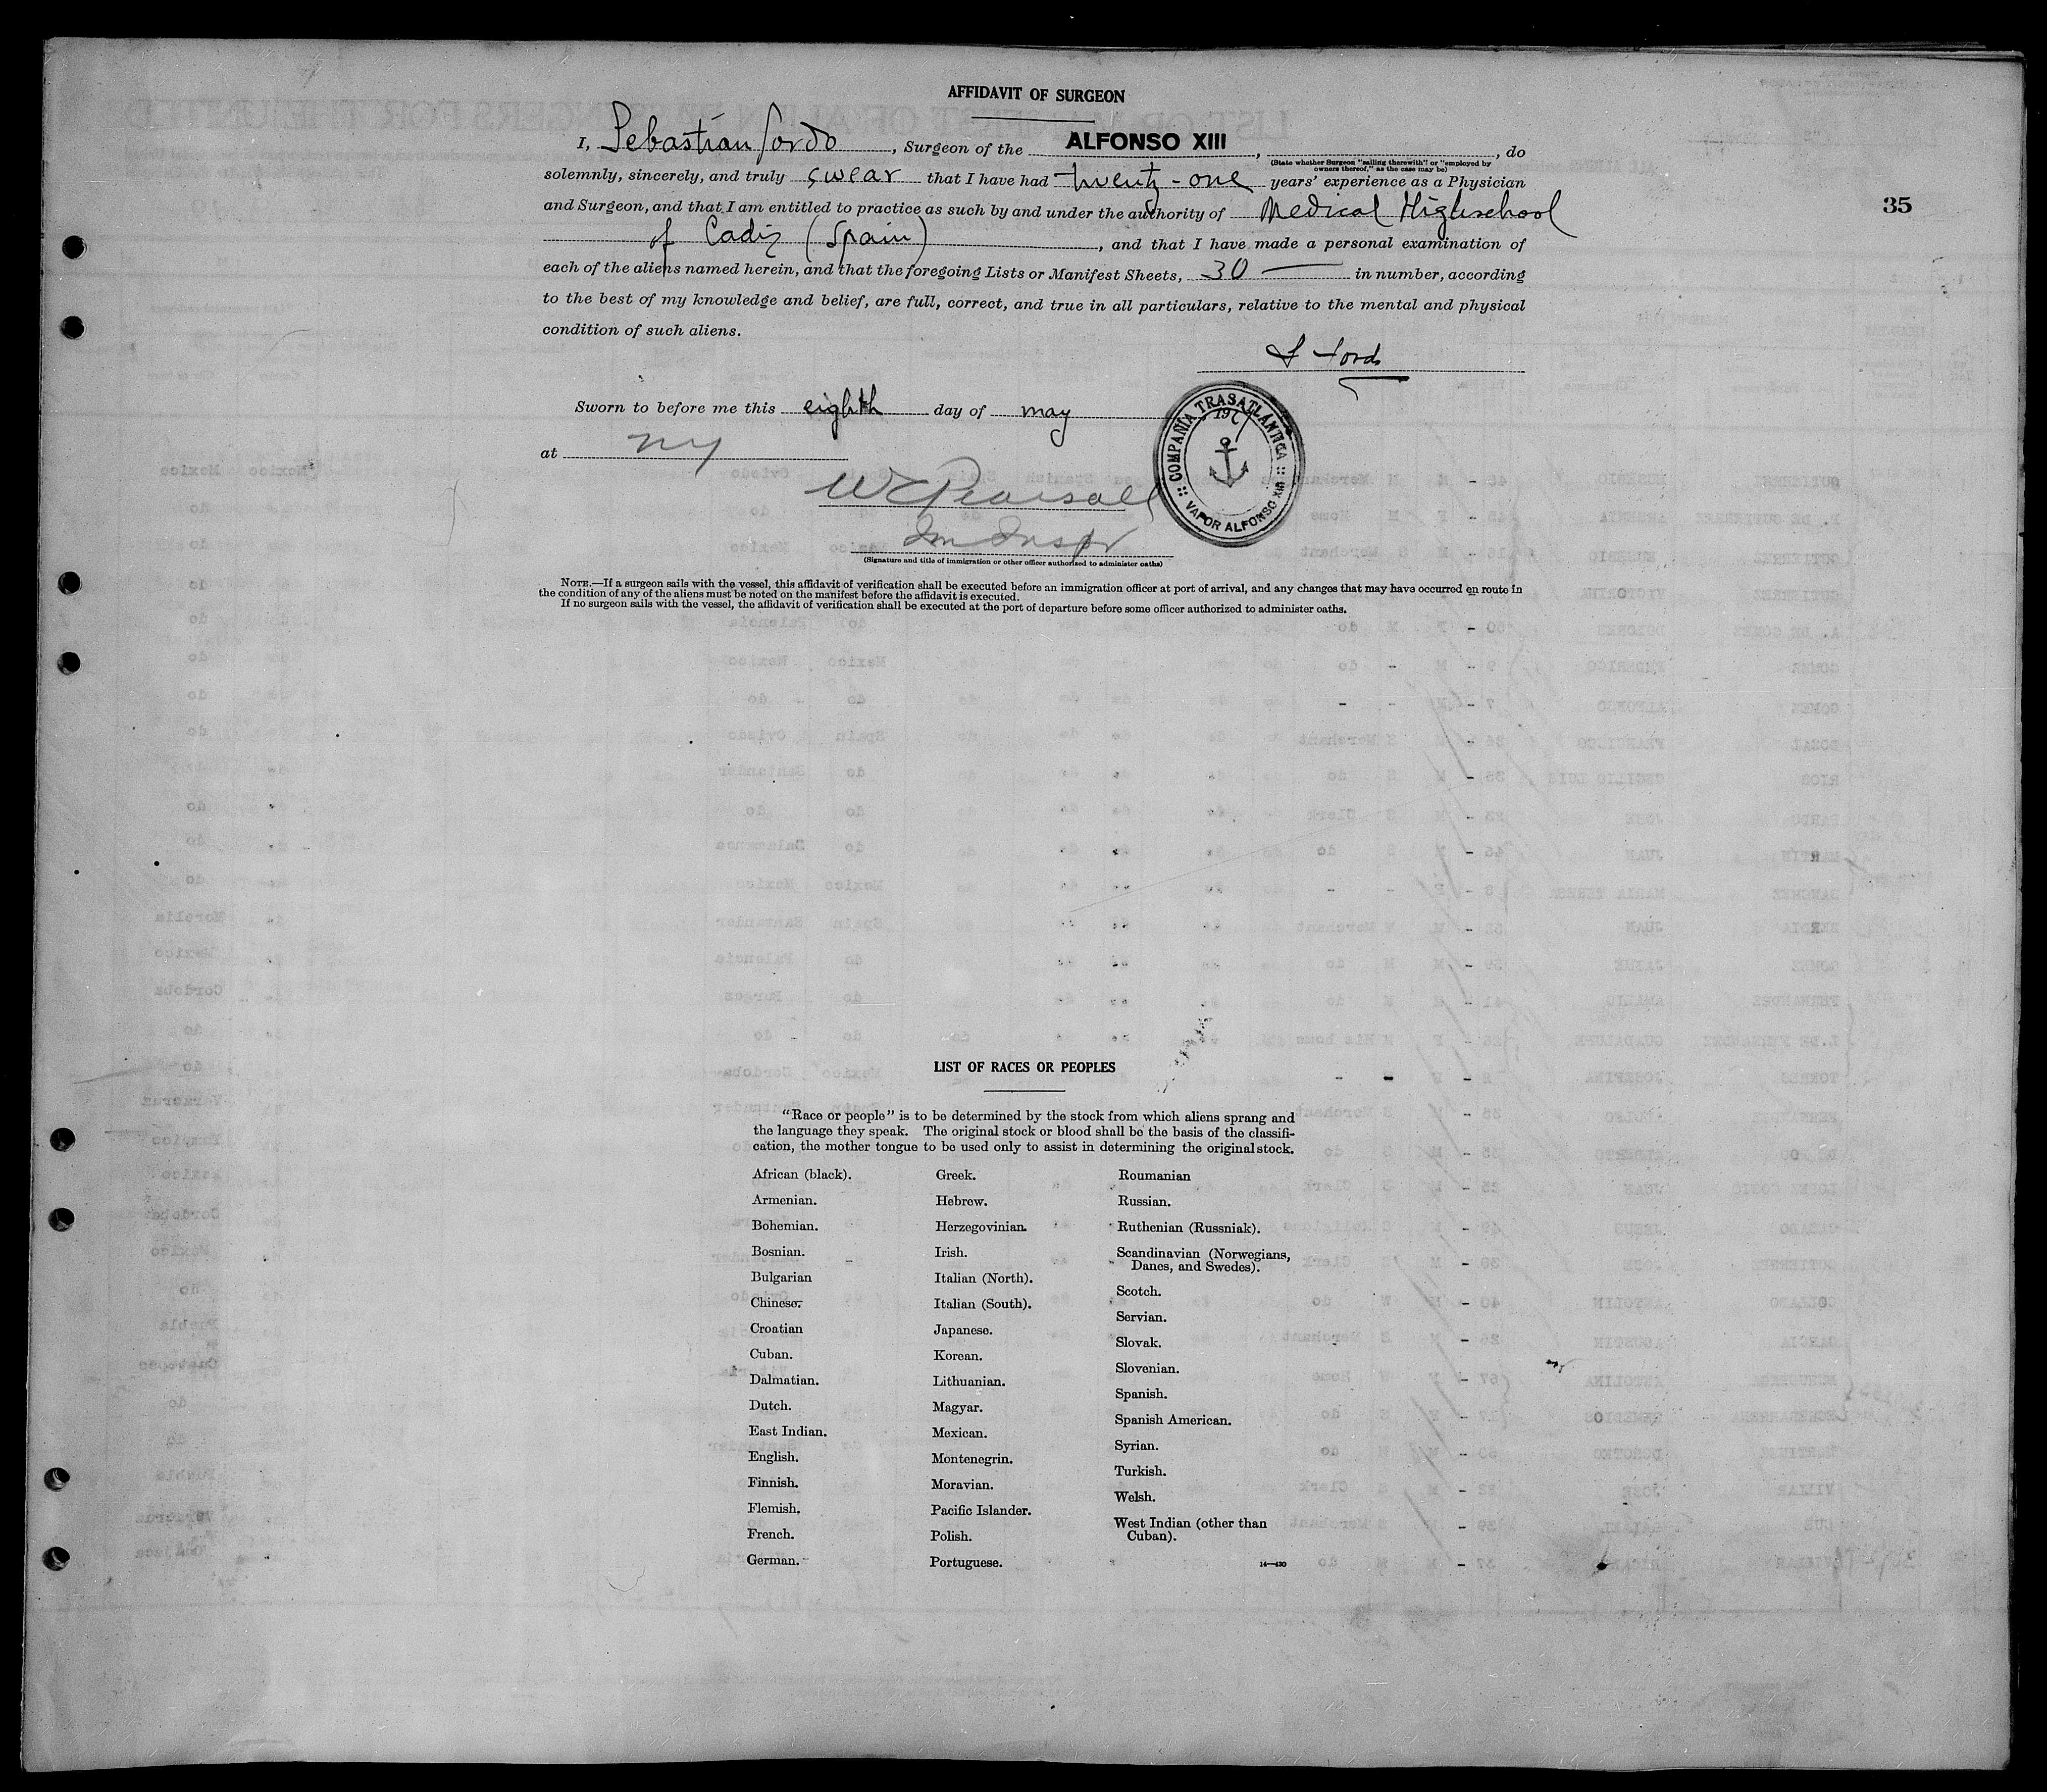 AFFIDAVIT OF SURGEON
I, Sebastian Sordo, Surgeon of the ALFONSO XIII, , do
(State whether Surgeon "sailing therewith" or "employed by
owners thereof," as the case may be)
solemnly, sincerely, and truly swear that I have had twenty-one years' experience as a Physician
and Surgeon, and that I am entitled to practice as such by and under the authority of Medical Highschool
35
of Cadiz (Spain), and that I have made a personal examination of
each of the aliens named herein, and that the foregoing Lists or Manifest Sheets, 30 — in number, according
to the best of my knowledge and belief, are full, correct, and true in all particulars, relative to the mental and physical
condition of such aliens.
S Sordo
Sworn to before me this eighth day of may
at ny
COMPAÑIA TRASATLANTICA
VAPOR ALFONSO XIII
W E Pearsall
Im Inspr
(Signature and title of immigration or other officer authorized to administer oaths)
NOTE.—If a surgeon sails with the vessel, this affidavit of verification shall be executed before an immigration officer at port of arrival, and any changes that may have occurred en route in
the condition of any of the aliens must be noted on the manifest before the affidavit is executed.
If no surgeon sails with the vessel, the affidavit of verification shall be executed at the port of departure before some officer authorized to administer oaths.
LIST OF RACES OR PEOPLES
"Race or people" is to be determined by the stock from which aliens sprang and
the language they speak. The original stock or blood shall be the basis of the classifi-
cation, the mother tongue to be used only to assist in determining the original stock.
African (black).
Armenian.
Bohemian.
Bosnian.
Bulgarian
Chinese.
Croatian
Cuban.
Dalmatian.
Dutch.
East Indian.
English.
Finnish.
Flemish.
French.
German.
Greek.
Hebrew.
Herzegovinian.
Irish.
Italian (North).
Italian (South).
Japanese.
Korean.
Lithuanian.
Magyar.
Mexican.
Montenegrin.
Moravian.
Pacific Islander.
Polish.
Portuguese.
Roumanian
Russian.
Ruthenian (Russniak).
Scandinavian (Norwegians,
Danes, and Swedes).
Scotch.
Servian.
Slovak.
Slovenian.
Spanish.
Spanish American.
Syrian.
Turkish.
Welsh.
West Indian (other than
Cuban).
14—430